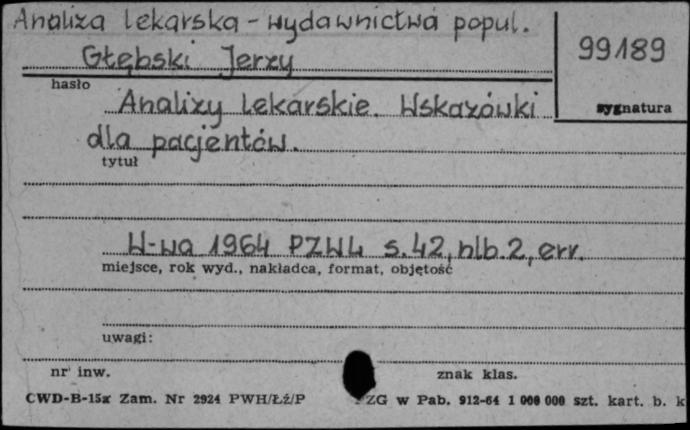 Analiza lekarska - wydawnictwa popul.
Głębski Jerzy
99189
hasło
sygnatura
Analizy lekarskie. Wskazówki
dla pacjentów.
tytuł
W-wa 1964 PZWL s.42, nlb.2, err.
miejsce, rok wyd., nakładca, format, objętość
uwagi:
nr inw.
znak klas.
CWD-B-15x Zam. Nr 2924 PWH/Łź/P ZG w Pab. 912-64 1 000 000 szt. kart. b. k